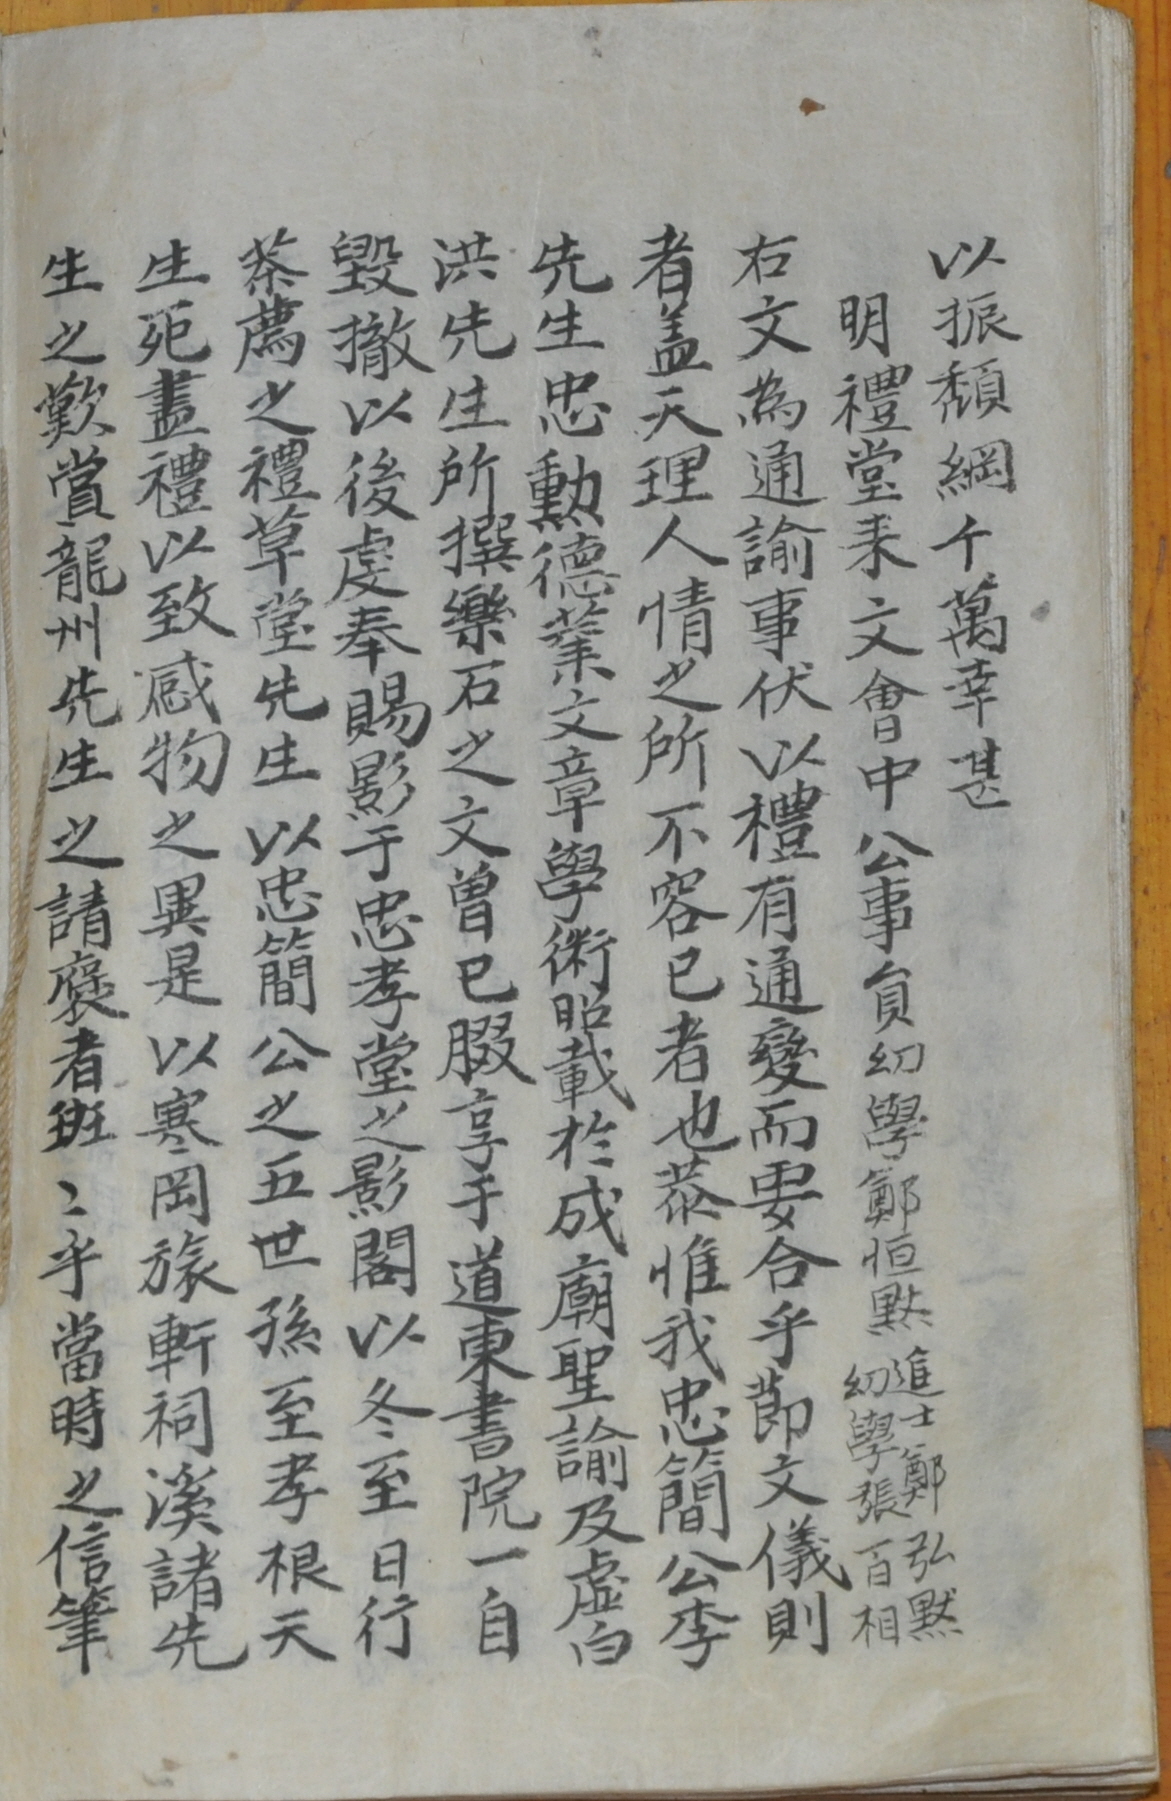 以振頹綱千萬幸甚
明禮堂來文會中公事員幼學鄭恒默
進士鄭弘默
幼學張百相
右文為通諭事伏以禮有通變而要合乎節文儀則
者盖天理人情之所不容已者也恭惟我忠簡公李
先生忠勳德業文章學術昭載於成廟聖諭及虛白
洪先生所撰樂石之文曾已腏享于道東書院一自
毁撤以後虔奉賜影于忠孝堂之影閣以冬至日行
茶薦之禮草堂先生以忠簡公之五世孫至孝根天
生死盡禮以致感物之異是以寒岡旅軒祠溪諸先
生之歎賞龍州先生之請褒者班〻乎當時之信筆